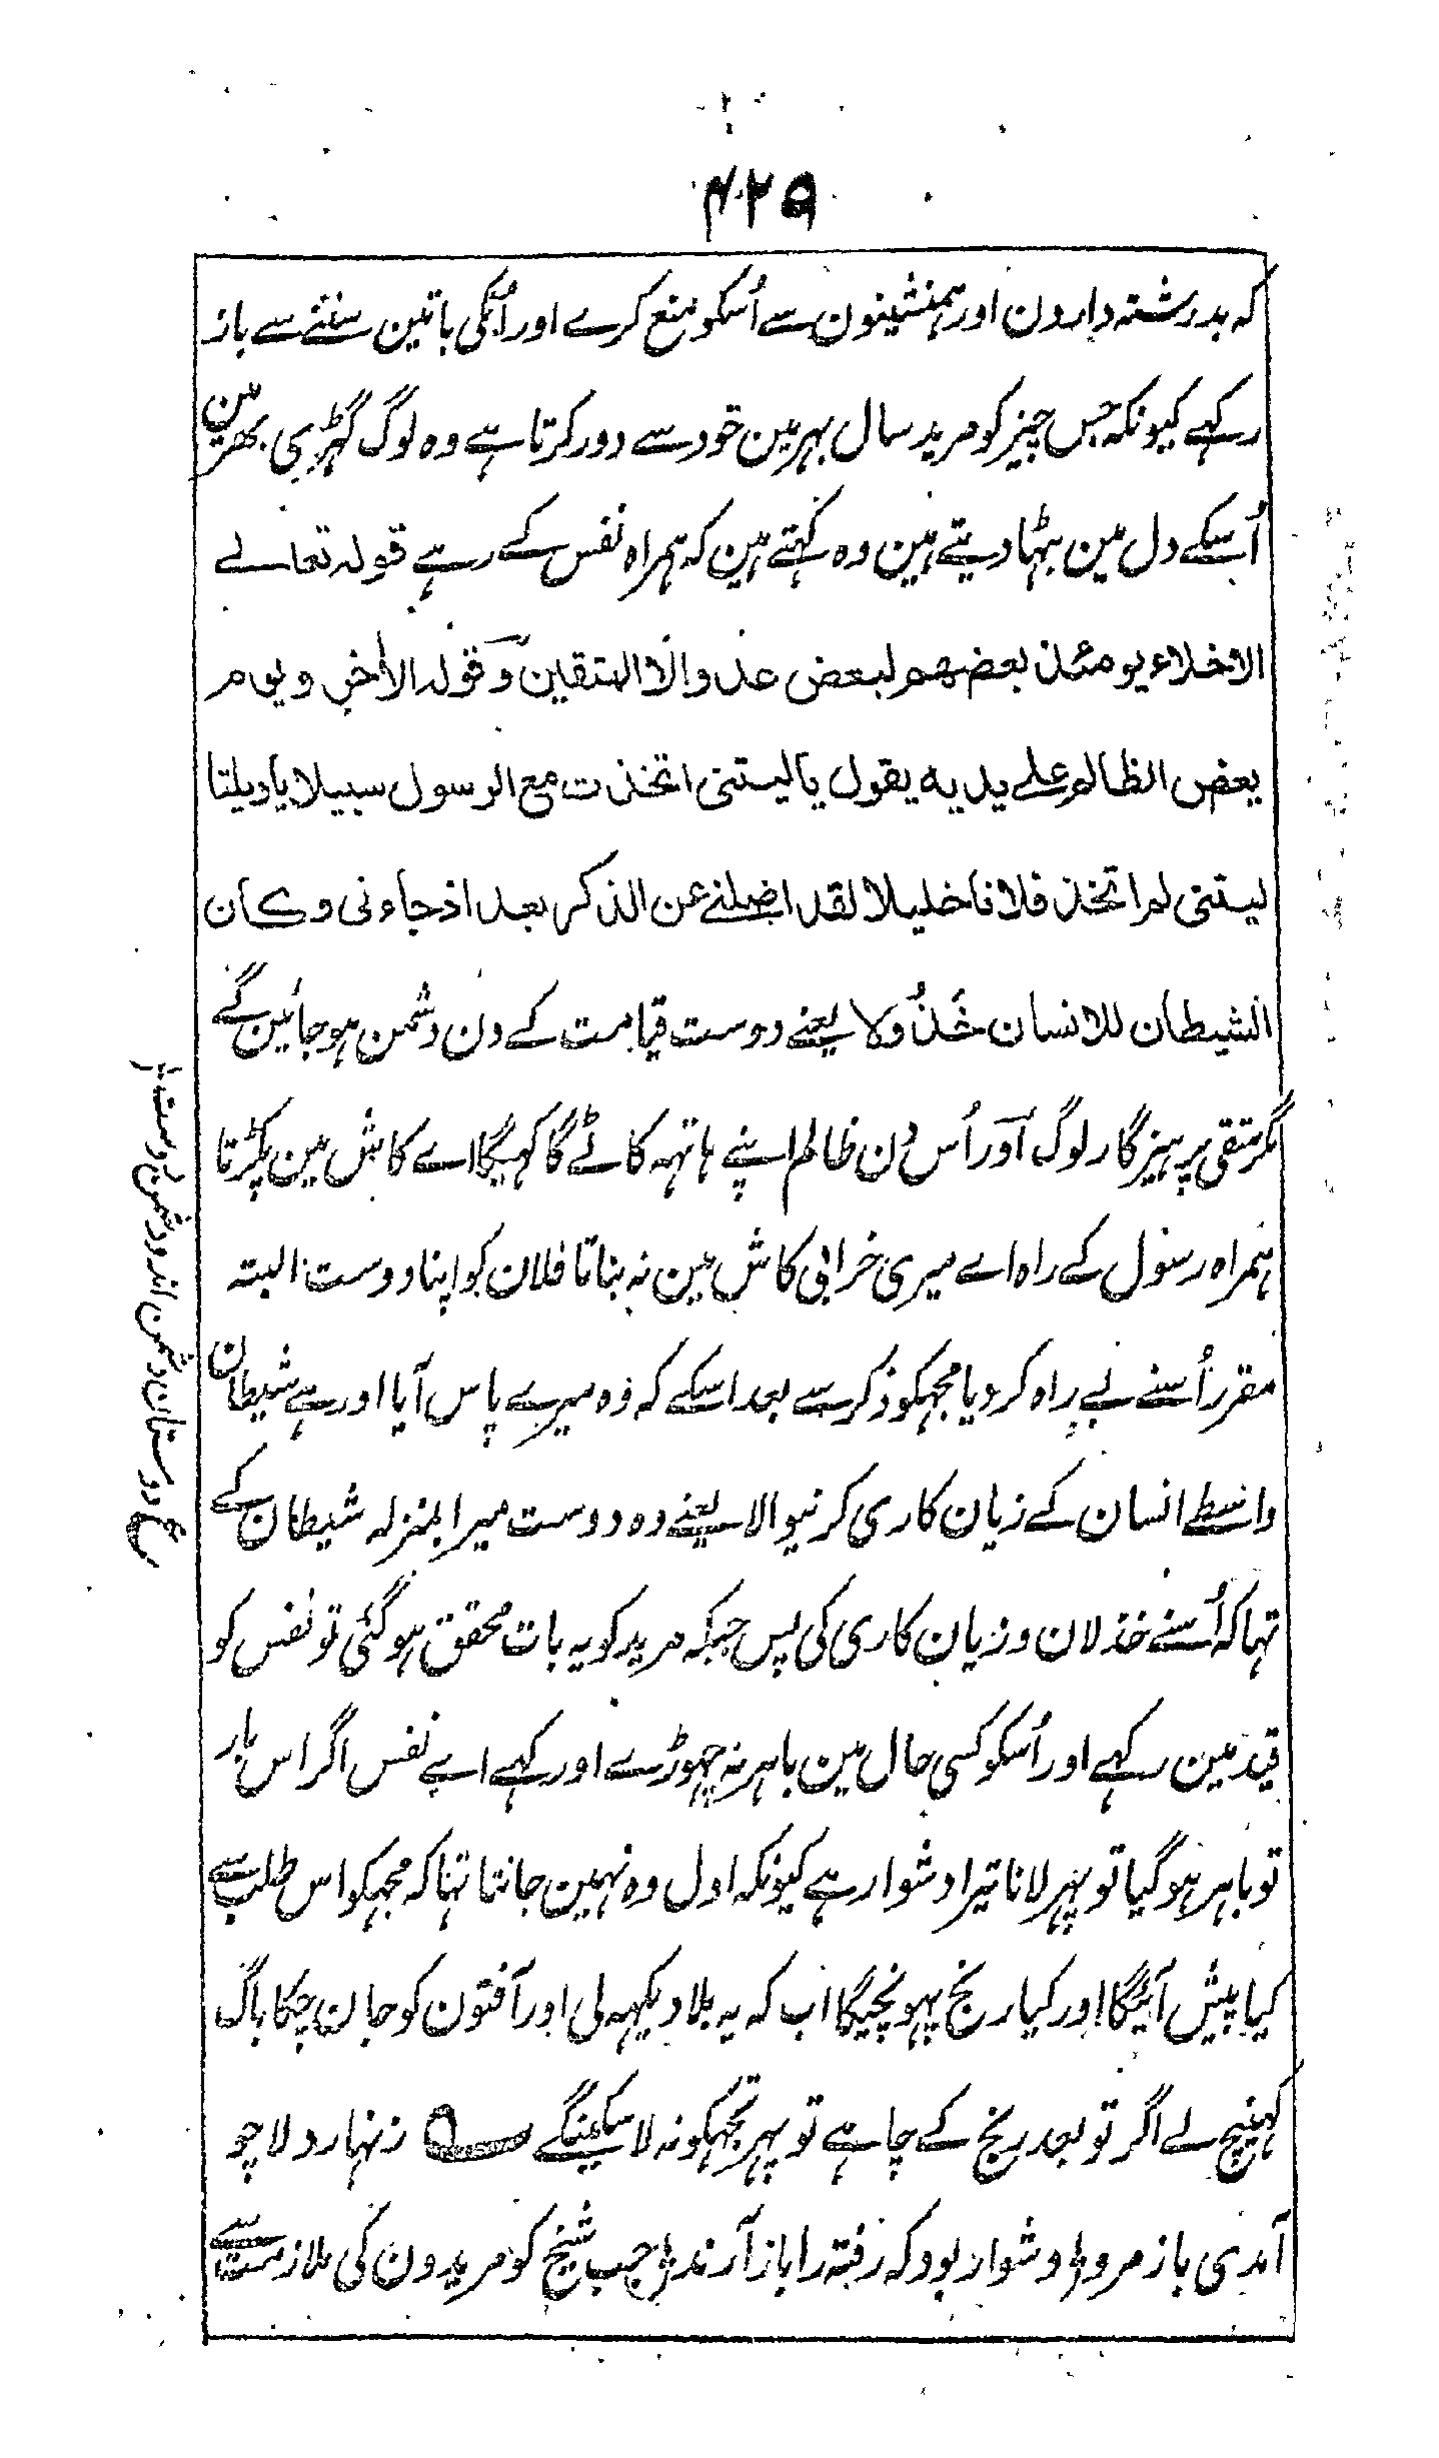 ۴۲۵
کہ بد رشتہ دارون اور ہمنشینون سے اُسکو منع کرے اور اُنکی باتین سننے سے باز
رکہے کیونکہ جس چیز کو مرید سال بہر مین خود سے دور کرتا ہے وہ لوگ گہڑی بھر مین
اُسکے دل مین بٹہا دیتے ہین وہ کہتے ہین کہ ہمراہ نفس کے رہے قولہ تعالے
الاخلاء یومئذ بعضهم لبعض عدو الا المتقین وَقوله الأخر ویوم
یعض الظالم علے یدیه یقول یالیتنی اتخذت مع الرسول سبیلا یاویلتا
لیتنی لم اتخذ فلانا خلیلا لقد اضلنے عن الذکر بعد اذ جاءنی وکان
الشیطان للانسان خَذُولا یعنے دوست قیامت کے دن دشمن ہو جائین گے
مگر متقی پرہیزگار لوگ اَور اُس دن ظالم اپنے ہاتہہ کاٹے گا کہیگا اے کاش مین پکڑتا
ہمراہ رسول کے راہ اے میری خرابی کاش مین نہ بناتا فلان کو اپنا دوست البتہ
مقرر اُسنے بے راہ کردیا مجہکو ذکر سے بعد اسکے کہ وہ میرے پاس آیا اور ہے شیطان
واسطے انسان کے زیان کاری کرنیوالا یعنے وہ دوست میرا بمنزلہ شیطان کے
تہا کہ اُسنے خذلان و زیان کاری کی پس جبکہ مرید کو یہ بات محقق ہو گئی تو نفس کو
قید مین رکہے اور اُسکو کسی حال مین باہر نہ چہوڑے اور کہے اے نفس اگر اس بار
تو باہر ہو گیا تو پہر لانا تیرا دشوار ہے کیونکہ اول وہ نہین جانتا تہا کہ مجہکو اس طلب سے
کیا پیش آئیگا اور کیا رنج پہونچیگا اب کہ یہ بلا دیکہہ لی اور آفتون کو جان چکا باگ
کہینچ لے اگر تو بعد رنج کے چاہے تو پہر تجہکو نہ لا سکینگے ؎ زنہار دلا چو
آمدی باز مرو؛ دشوار بود کہ رفتہ را باز آرند؛ جب شیخ کو مریدون کی ملازمت سے
ع دوستان دشمن اند و دشمن دوست؛